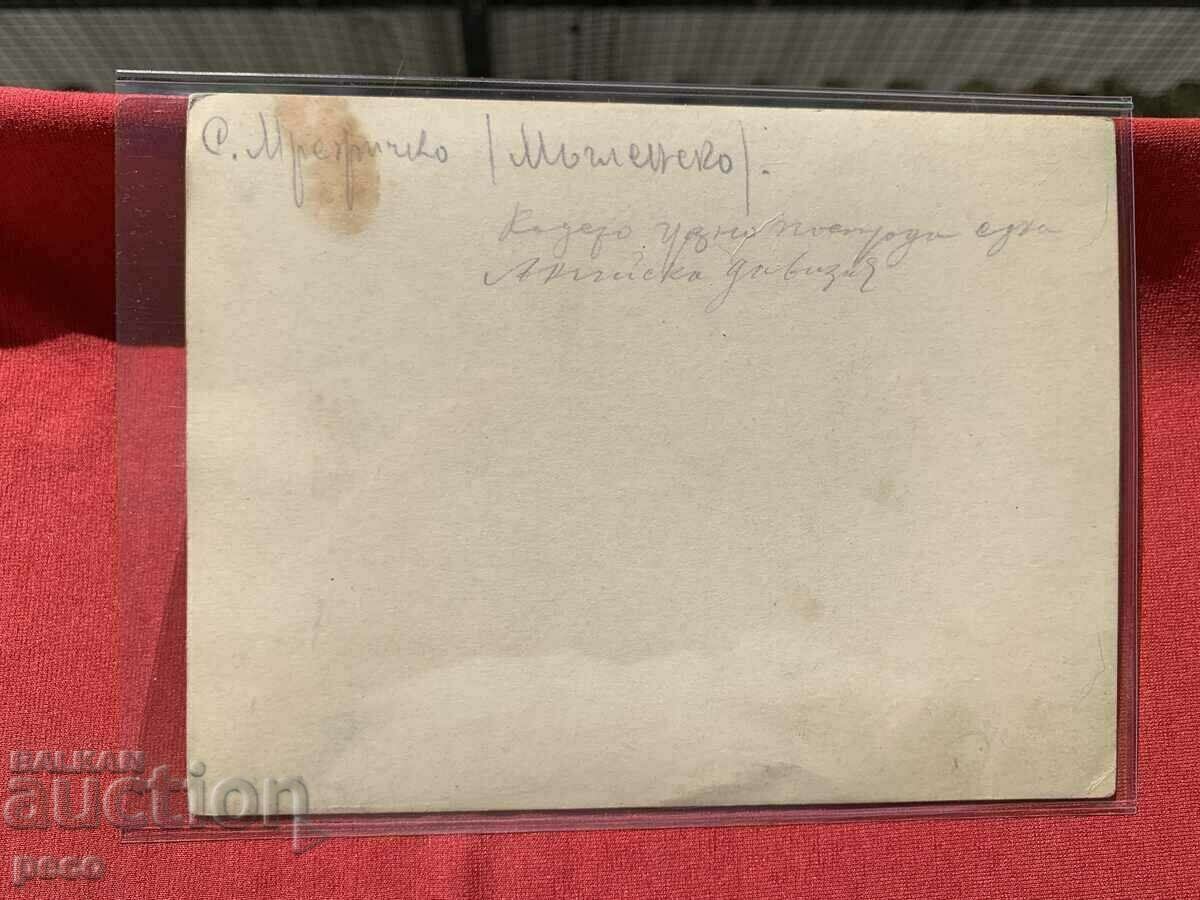 С. Мрежичко /Мъгленско/.
Кадето цяло пострада една
Английска дивизия
BALKAN
auction
peco